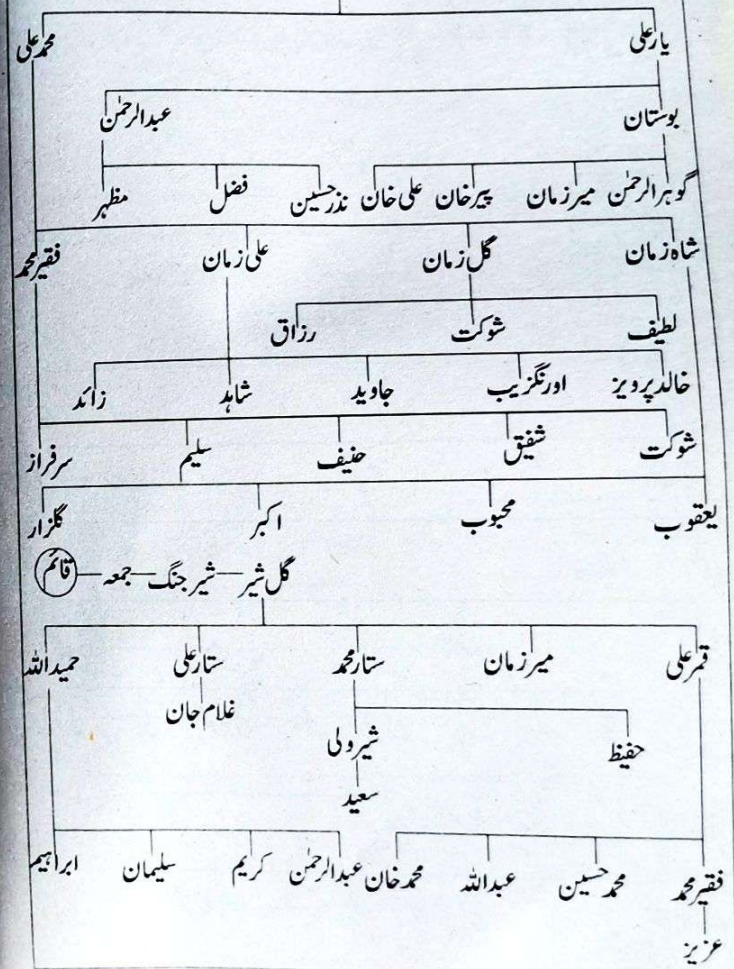 یارعلی محمدعلی
بوستان عبدالرحمٰن
گوہرالرحمٰن میرزمان پیرخان علی خان نذرحسین فضل مظہر
شاہ زمان گل زمان علی زمان فقیرمحمد
لطیف شوکت رزاق
خالدپرویز اورنگزیب جاوید شاہد زائد
شوکت شفیق حنیف سلیم سرفراز
یعقوب محبوب اکبر گلزار
گل شیر شیرجنگ جمعہ قائم
قمرعلی میرزمان ستارمحمد ستارعلی حمیداللہ
غلام جان
حفیظ شیرولی
سعید
فقیرمحمد محمدحسین عبداللہ محمدخان عبدالرحمٰن کریم سلیمان ابراہیم
عزیز